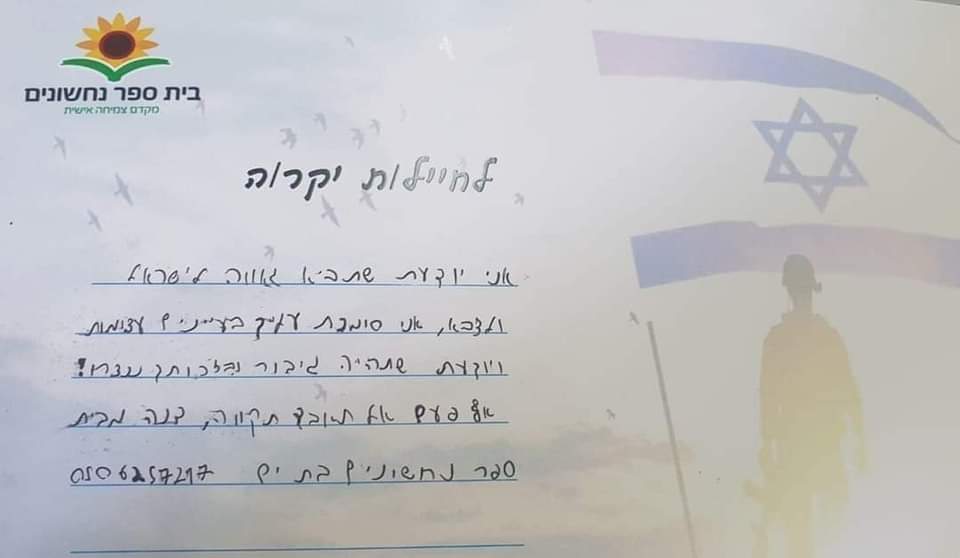 בית ספר נחשונים
מקדם צמיחה אישית
לחיילות יקרוה
אני יודעת שתביא גאווה לישראל
ולצבא, אני סומכת עליך בעיניים עצומות
ויודעת שתהיה גיבור ובזכותך ננצח!
אף פעם אל תאבד תקווה, מבית
ספר נחשונים בת ים 0506257217